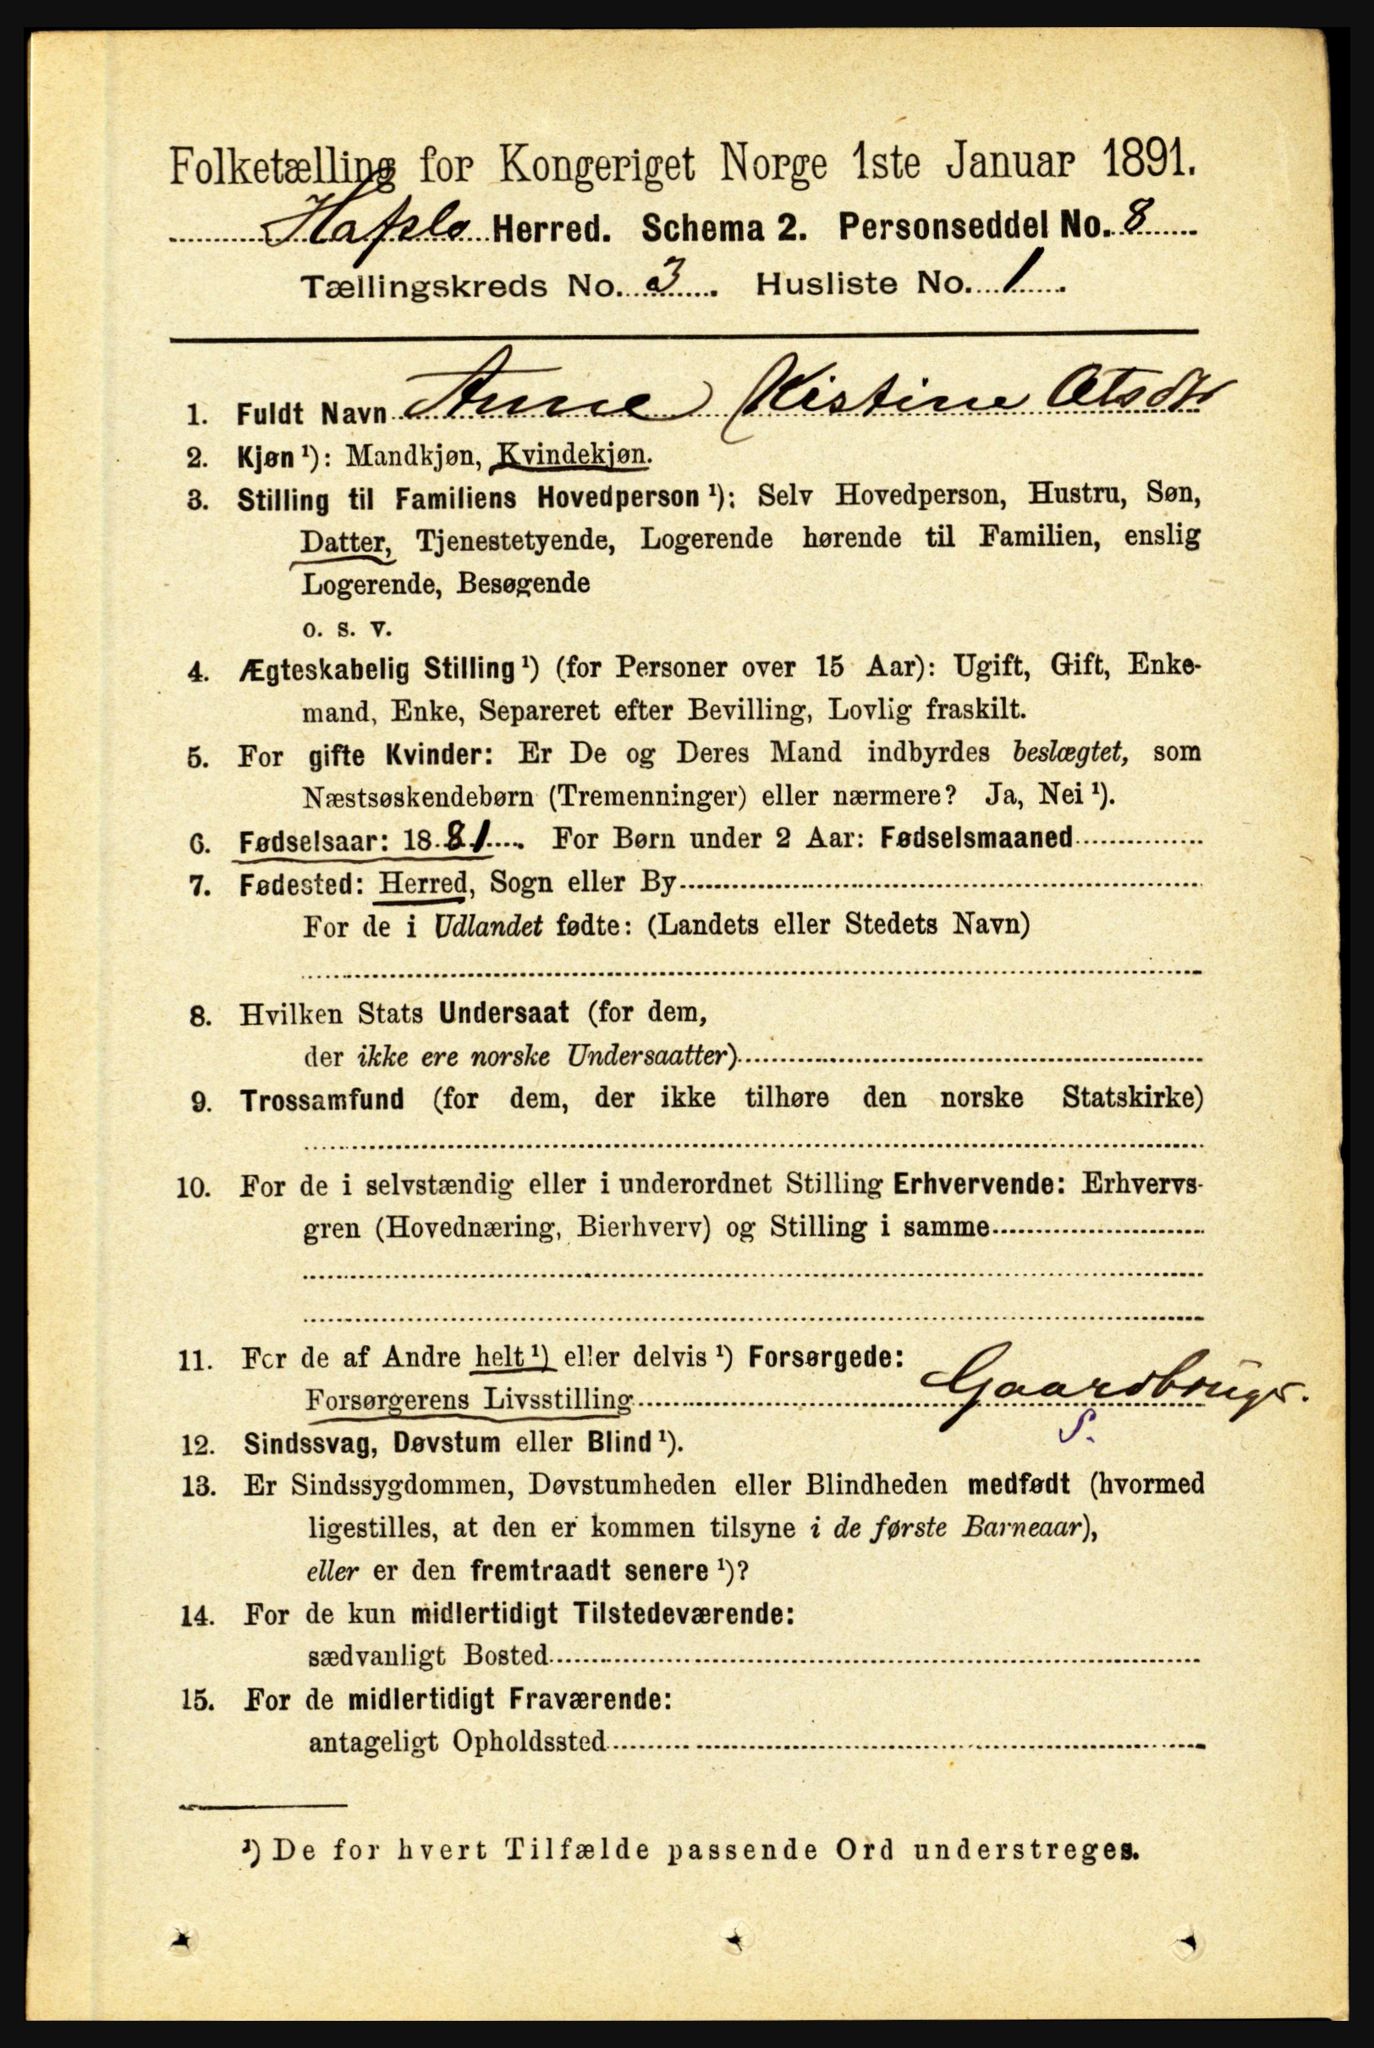 Folketælling for Kongeriget Norge 1ste Januar 1891.
Hafslo Herred. Schema 2. Personseddel No. 8
Tællingskreds No. 3. Husliste No. 1.
1. Fuldt Navn Anne Kistine Olsdtr
2. Kjøn ¹): Mandkjøn, Kvindekjøn.
3. Stilling til Familiens Hovedperson ¹): Selv Hovedperson, Hustru, Søn,
Datter, Tjenestetyende, Logerende hørende til Familien, enslig
Logerende, Besøgende
o. s. v.
4. Ægteskabelig Stilling ¹) (for Personer over 15 Aar): Ugift, Gift, Enke-
mand, Enke, Separeret efter Bevilling, Lovlig fraskilt.
5. For gifte Kvinder: Er De og Deres Mand indbyrdes beslægtet, som
Næstsøskendebørn (Tremenninger) eller nærmere? Ja, Nei ¹).
6. Fødselsaar: 1881. For Børn under 2 Aar: Fødselsmaaned
7. Fødested: Herred, Sogn eller By
For de i Udlandet fødte: (Landets eller Stedets Navn)
8. Hvilken Stats Undersaat (for dem,
der ikke ere norske Undersaatter)
9. Trossamfund (for dem, der ikke tilhøre den norske Statskirke)
10. For de i selvstændig eller i underordnet Stilling Erhvervende: Erhvervs-
gren (Hovednæring, Bierhverv) og Stilling i samme
11. For de af Andre helt ¹) eller delvis ¹) Forsørgede:
Forsørgerens Livsstilling Gaardbruger.
S.
12. Sindssvag, Døvstum eller Blind ¹).
13. Er Sindssygdommen, Døvstumheden eller Blindheden medfødt (hvormed
ligestilles, at den er kommen tilsyne i de første Barneaar),
eller er den fremtraadt senere ¹)?
14. For de kun midlertidigt Tilstedeværende:
sædvanligt Bosted
15. For de midlertidigt Fraværende:
antageligt Opholdssted
¹) De for hvert Tilfælde passende Ord understreges.